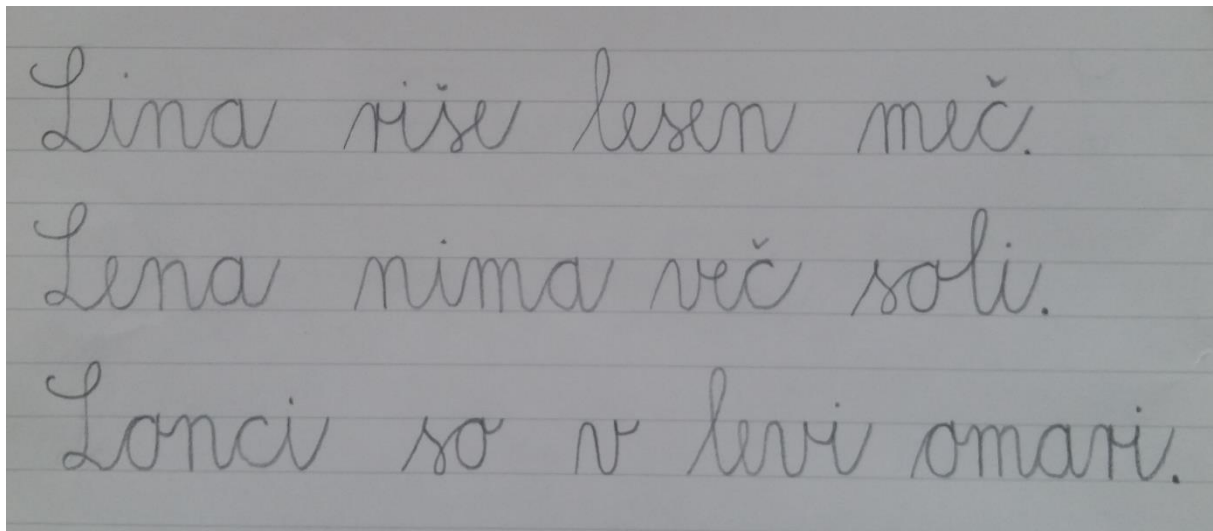 Lina riše lesen meč.
Lena nima več soli.
Lonci so v levi omari.